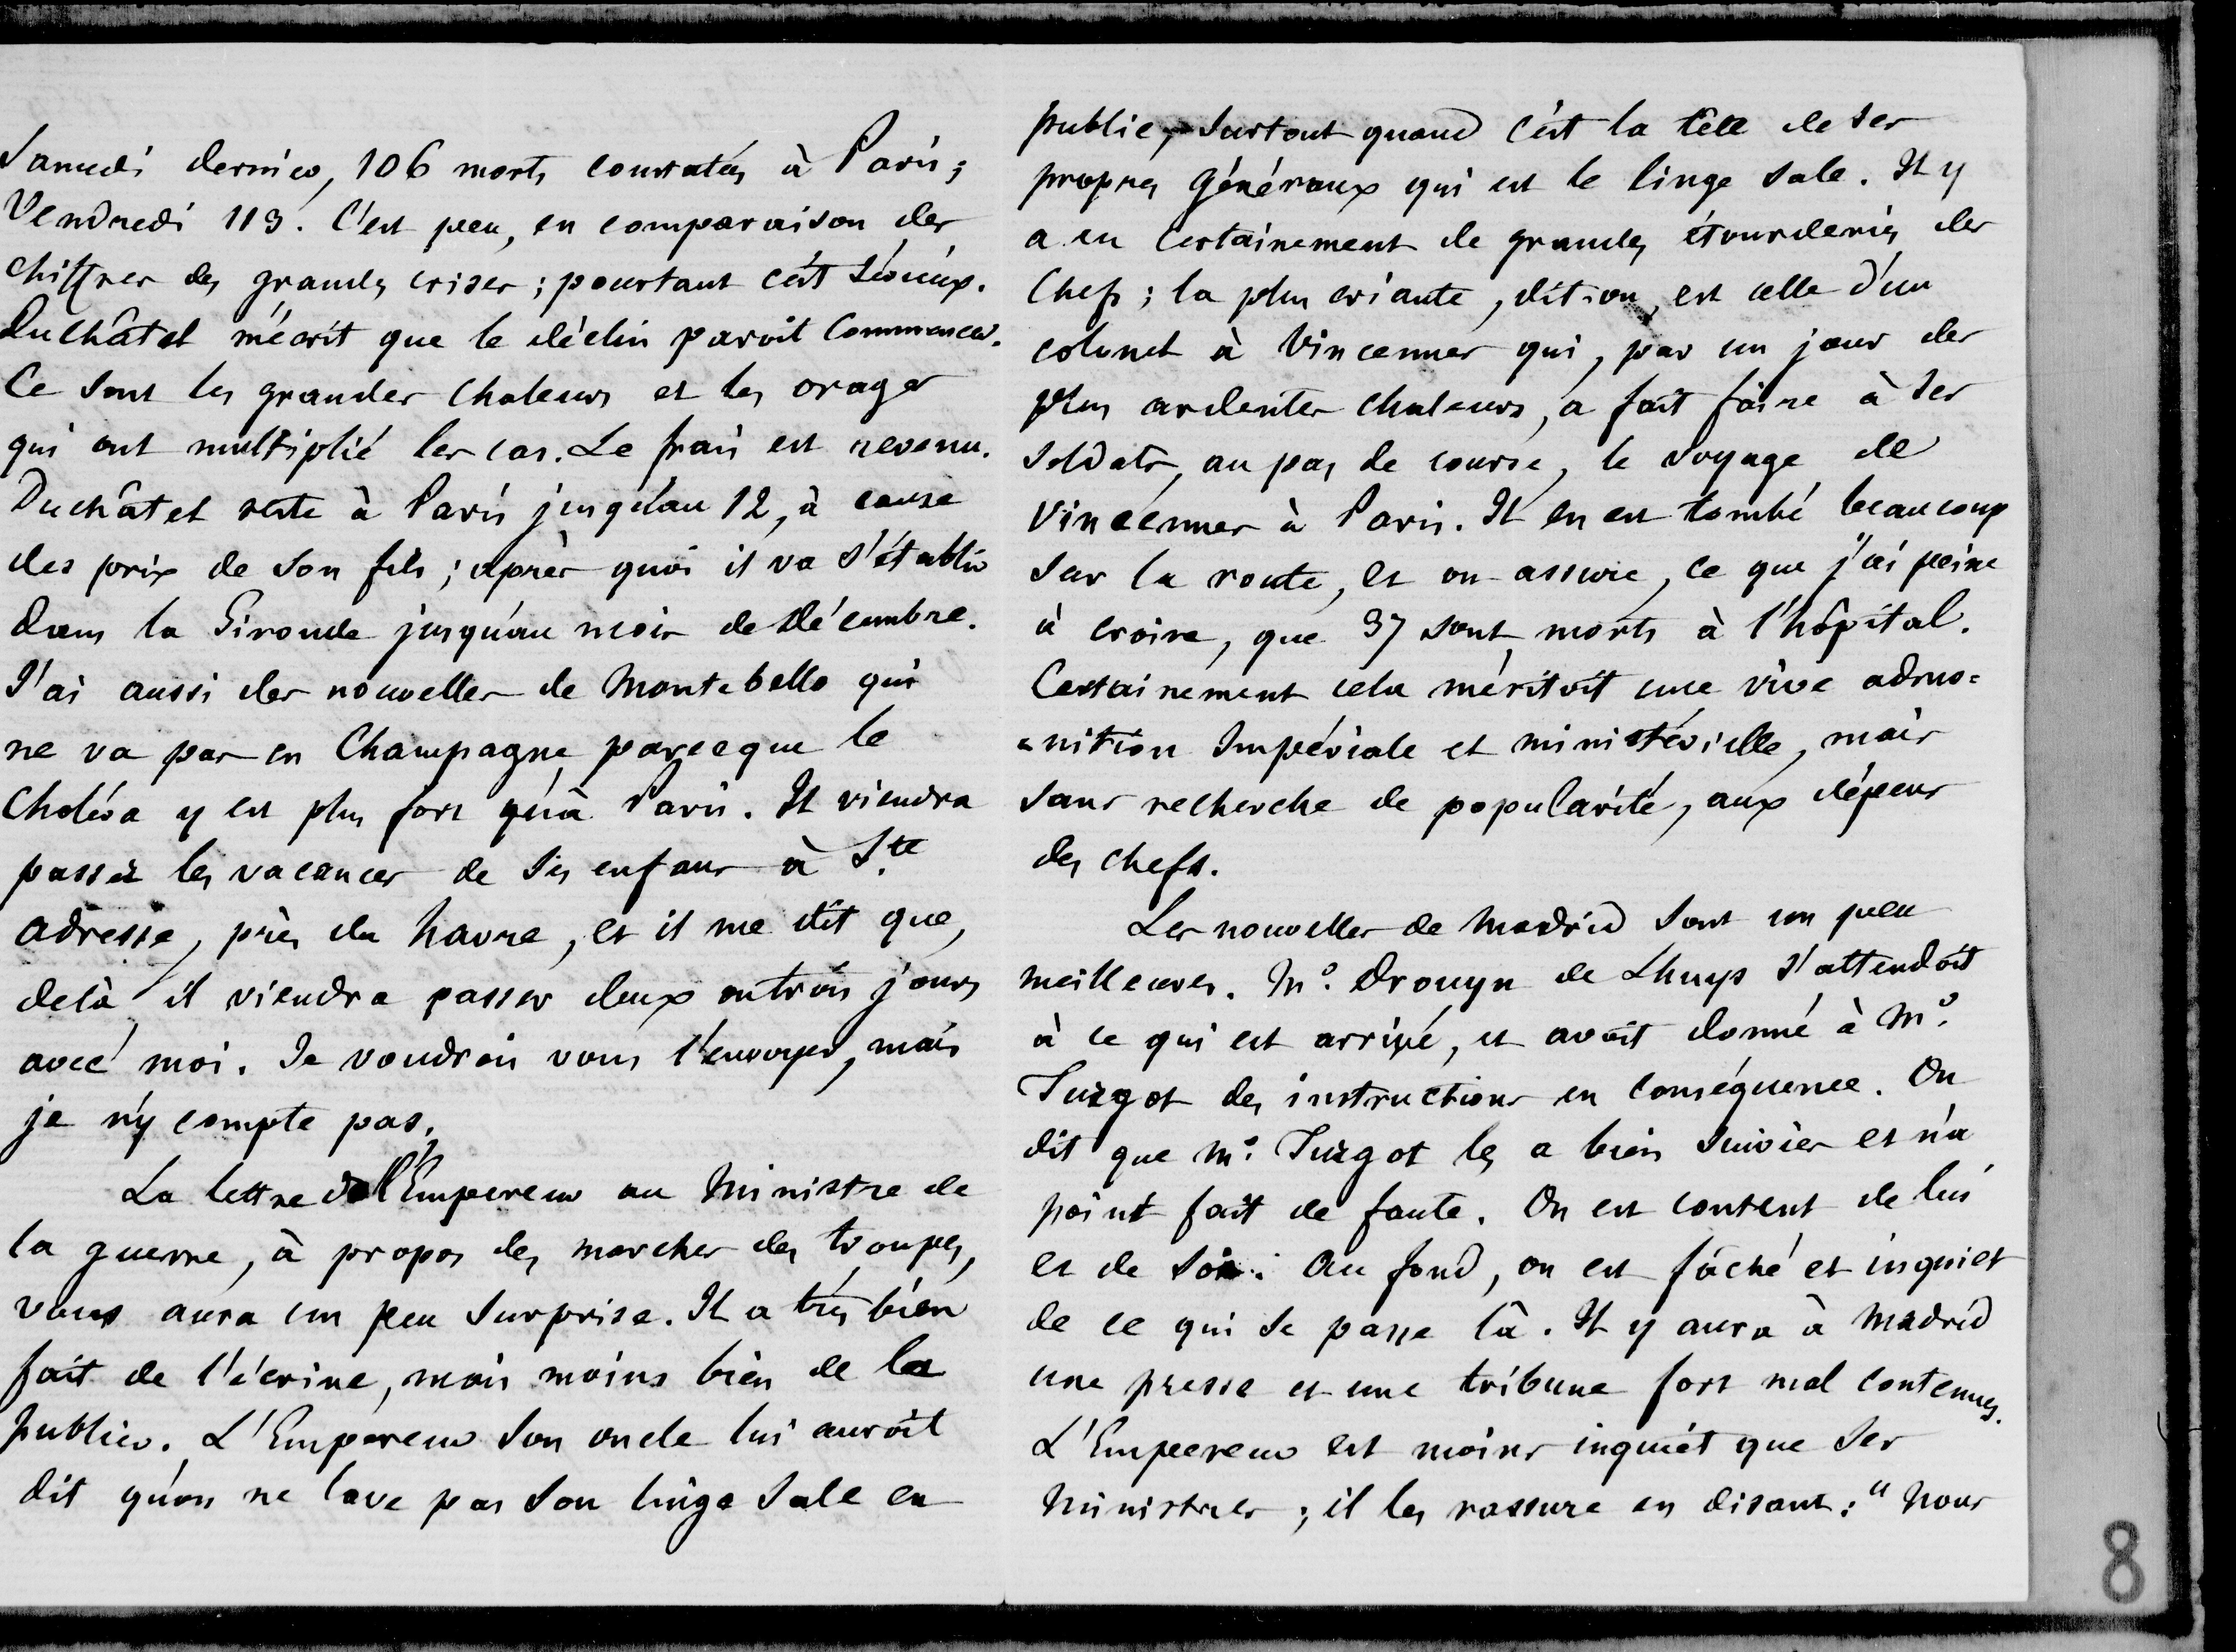 Samedi dernier, 106 morts constatés à Paris;
Vendredi 113. C'est peu, en comparaison des
chiffres des grandes crises; pourtant c'est sérieux.
Duchâtel m'écrit que le déclin paroit commencer.
Ce sont les grandes chaleurs et les orages
qui ont multiplié les cas. Le frais est revenu.
Duchâtel reste à Paris jusqu'au 12, à cause
des prix de son fils; après quoi il va s'établir
dans la Gironde jusqu'au mois de Décembre.
J'ai aussi des nouvelles de Montebello qui
ne va pas en Champagne parceque le
Choléra y est plus fort qu'à Paris. Il viendra
passer les vacances de ses enfans à Ste
adresse, près du havre, et il me dit que,
delà il viendra passer deux ou trois jours
avec moi. Je voudrois vous l'envoyer, mais
je n'y compte pas.
La lettre de l'Empereur au Ministre de
la guerre, à propos des marches des troupes,
vous aura un peu surprise. Il a très bien
fait de l'écrire, mais moins bien de la
publier. L'Empereur son oncle lui auroit
dit qu'on ne lave pas son linge sale en
public, surtout quand c'est la tête de ses
propres généraux qui est le linge sale. Il y
a eu certainement de grandes étourderies des
Chefs; la plus criante, dit-on, est celle d'un
colonel à Vincennes qui, par un jour des
plus ardentes chaleurs, a fait faire à ses
soldats, au pas de course, le voyage de
Vincennes à Paris. Il en est tombé beaucoup
sur la route, et on assure, ce que j'ai peine
à croire, que 37 sont morts à l'hôpital.
Certainement cela méritoit une vive admo=
=nition Impériale et ministérielle, mais
sans recherche de popularité, aux dépens
des chefs.
Les nouvelles de Madrid sont un peu
meilleures. Mr. Drouyn de Lhuys s'attendoit
à ce qui est arrivé, et avoit donné à Mr.
Turgot des instructions en conséquence. On
dit que Mr. Turgot les a bien suivies et n'a
point fait de faute. On est content de lui
et de soi. Au fond, on est fâché et inquiet
de ce qui se passe là. Il y aura à Madrid
une presse et une tribune fort mal contenues.
L'Empereur est moins inquiet que ses
Ministres; il les rassure en disant: "Nous
8